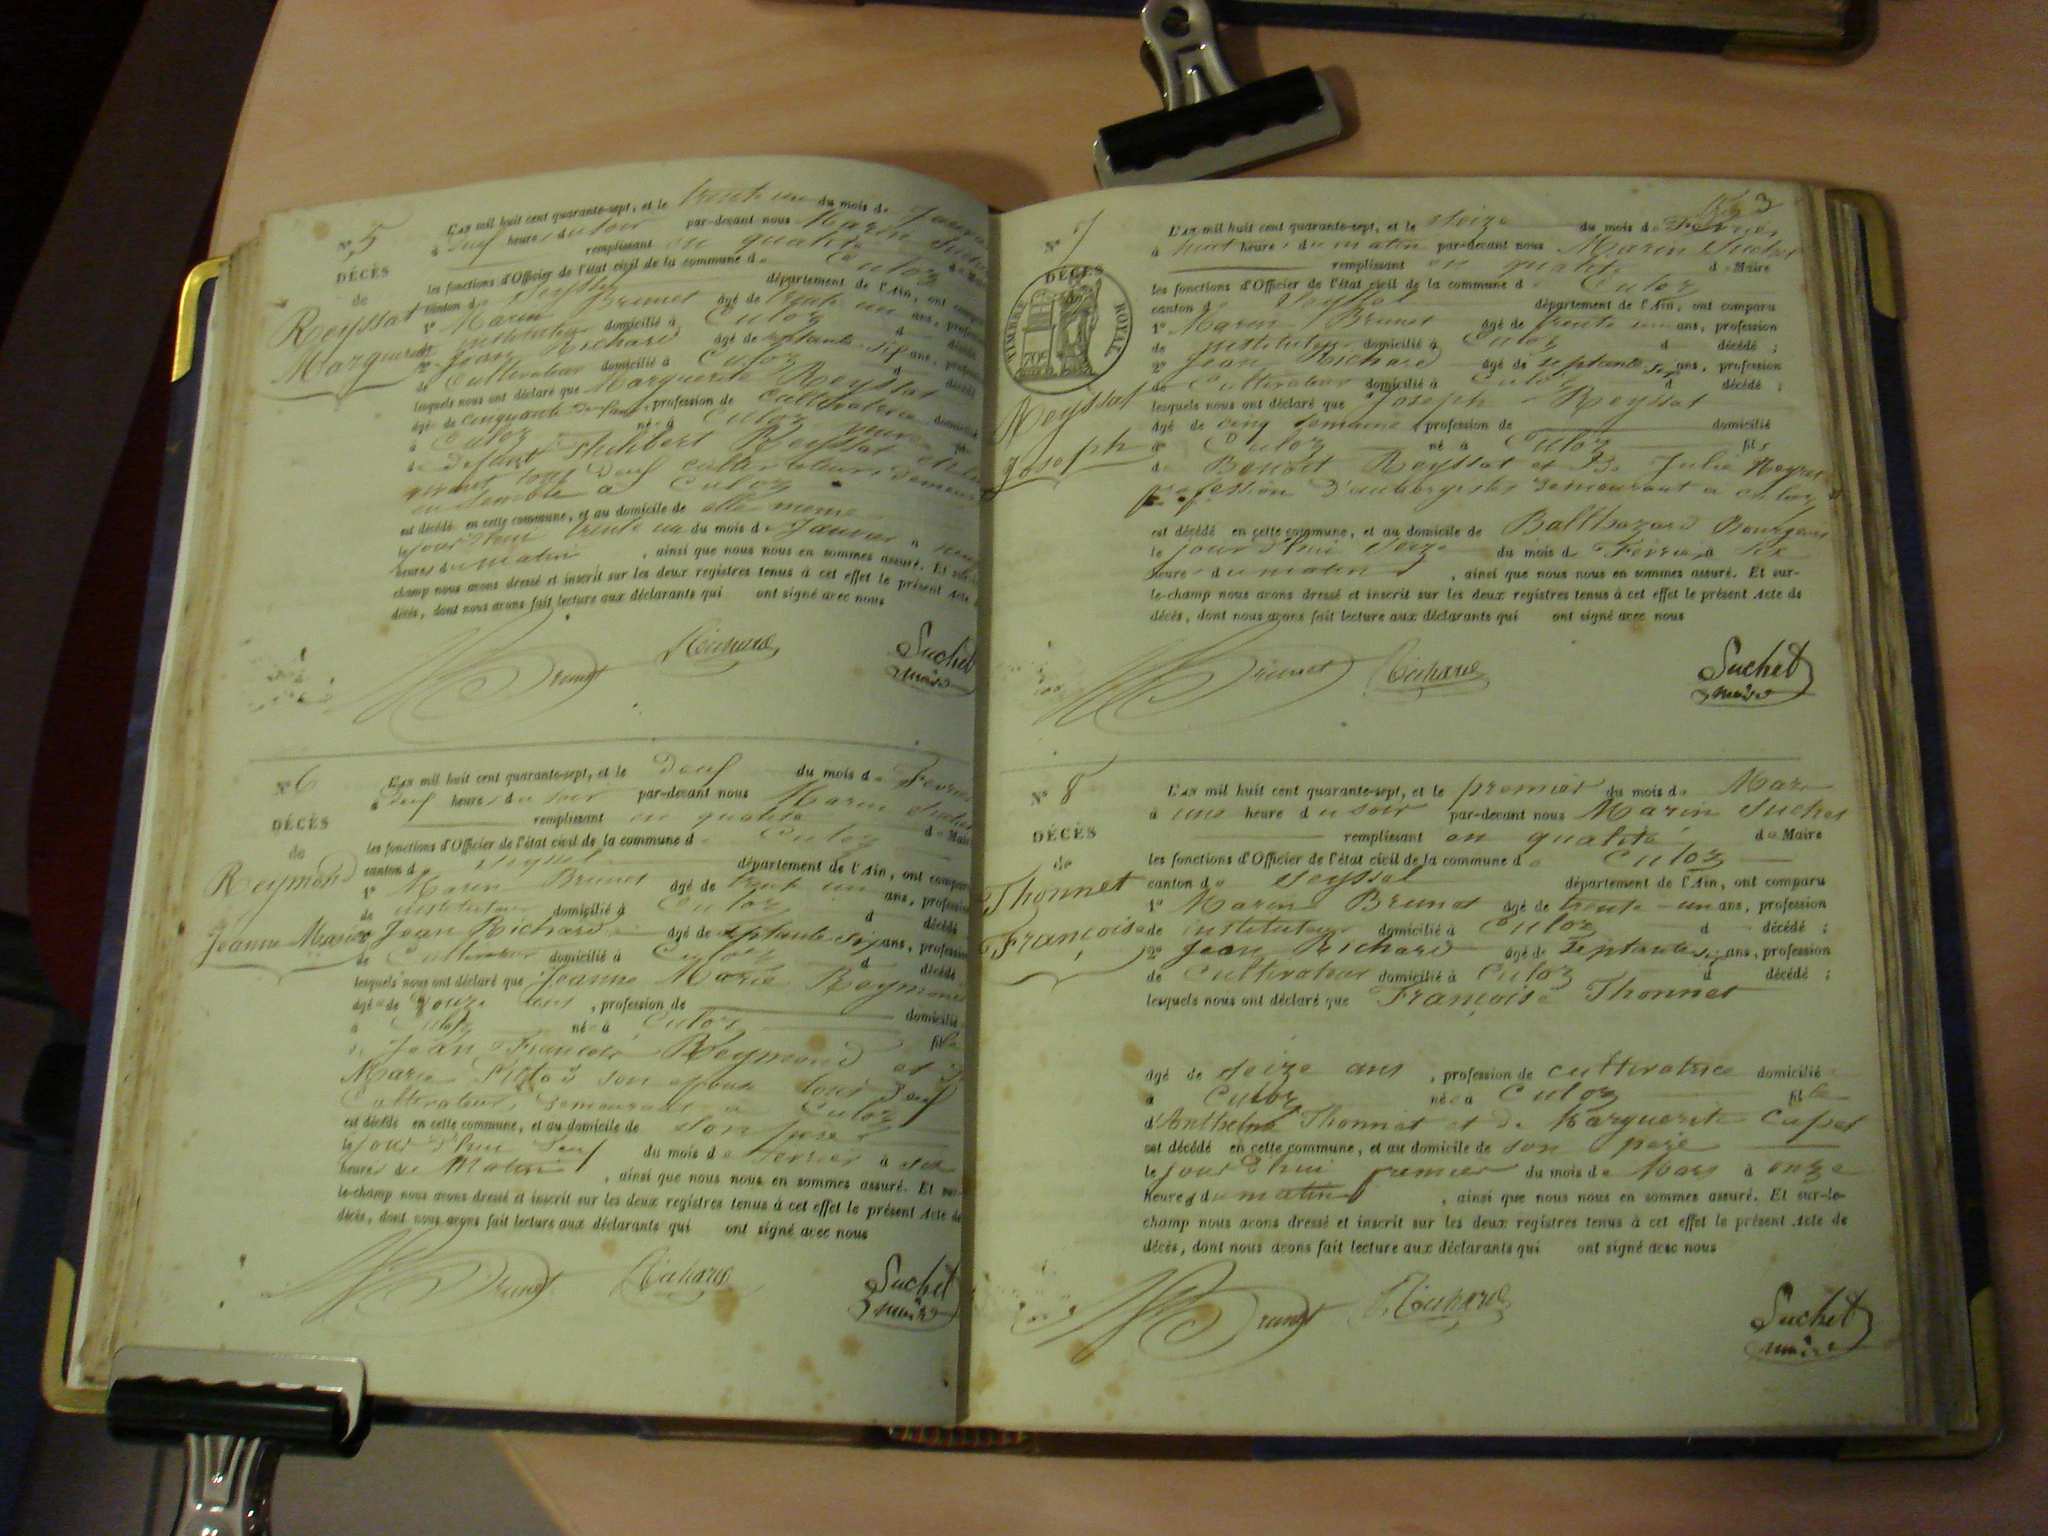 N° 5
DÉCÈS
de
Reyssat
Marguerite
L'AN mil huit cent quarante-sept, et le trente un du mois de
à deux heures du soir par-devant nous Marin
remplissant en qualité de
les fonctions d'Officier de l'état civil de la commune de Culoz
canton de Seyssel département de l'Ain, ont
1° Marin Brunet âgé de trente un ans,
de instituteur domicilié à Culoz d décédé
2° Jean Richard âgé de septante-six ans,
de Cultivateur domicilié à Culoz d décédé
lesquels nous ont déclaré que Marguerite Reyssat
âgée de cinquante ans, profession de cultivatrice domiciliée
à Culoz née à Culoz
de défunt Philibert Reyssat
tous deux cultivateurs
ensemble à Culoz
est décédé en cette commune, et au domicile de elle même
le jourd'hui trente un du mois de Janvier à
heures du matin , ainsi que nous nous en sommes assuré. Et
champ nous avons dressé et inscrit sur les deux registres tenus à cet effet le présent Acte
décès, dont nous avons fait lecture aux déclarants qui ont signé avec nous
Brunet Richard Suchet
maire
N° 6
DÉCÈS
de
Reymond
Jeanne Marie
L'AN mil huit cent quarante-sept, et le deux du mois de
à deux heures du soir par-devant nous Marin
remplissant en qualité de Maire
les fonctions d'Officier de l'état civil de la commune de Culoz
canton d Seyssel département de l'Ain, ont
1° Marin Brunet âgé de trente un ans, profession
de instituteur domicilié à Culoz d décédé
2° Jean Richard âgé de septante-six ans, profession
de Cultivateur domicilié à Culoz d décédé
lesquels nous ont déclaré que Jeanne Marie Reymond
âgée de douze ans , profession de domicilié
à Culoz née à Culoz fille
de Jean François Reymond et
Marie son épouse tous deux
Cultivateurs demeurant à Culoz
est décédé en cette commune, et au domicile de son père
le jourd'hui deux du mois de fevrier à six
heures du Matin , ainsi que nous nous en sommes assuré. Et sur-
le-champ nous avons dressé et inscrit sur les deux registres tenus à cet effet le présent Acte de
décès, dont nous avons fait lecture aux déclarants qui ont signé avec nous
Brunet Richard Suchet
maire
3
N° 7
DÉCÈS
TIMBRE ROYAL
70c
Reyssat
Joseph
L'AN mil huit cent quarante-sept, et le seize du mois de Fevrier
à huit heures du matin par-devant nous Marin Suchet
remplissant en qualité de Maire
les fonctions d'Officier de l'état civil de la commune de Culoz
canton de Seyssel département de l'Ain, ont comparu
1° Marin Brunet âgé de trente un ans, profession
de instituteur domicilié à Culoz d décédé ;
2° Jean Richard âgé de septante six ans, profession
de Cultivateur domicilié à Culoz d décédé ;
lesquels nous ont déclaré que Joseph Reyssat
âgé de cinq semaines profession de domicilié
à Culoz né à Culoz fils
de Benoît Reyssat et de Julie
profession d'aubergistes demeurant à culoz
est décédé en cette commune, et au domicile de Balthazard Bourgeois
le jourd'hui seize du mois de Fevrier à six
heures du matin , ainsi que nous nous en sommes assuré. Et sur-
le-champ nous avons dressé et inscrit sur les deux registres tenus à cet effet le présent Acte de
décès, dont nous avons fait lecture aux déclarants qui ont signé avec nous
Brunet Richard Suchet
maire
N° 8
DÉCÈS
de
Thonnet
Françoise
L'AN mil huit cent quarante-sept, et le premier du mois de Mars
à une heure du soir par-devant nous Marin Suchet
remplissant en qualité de Maire
les fonctions d'Officier de l'état civil de la commune de Culoz
canton de Seyssel département de l'Ain, ont comparu
1° Marin Brunet âgé de trente-un ans, profession
de instituteur domicilié à Culoz d décédé ;
2° Jean Richard âgé de septante six ans, profession
de Cultivateur domicilié à Culoz d décédé ;
lesquels nous ont déclaré que Françoise Thonnet
âgé de seize ans , profession de cultivatrice domicilié
à Culoz née à Culoz fille
d'Anthelme Thonnet et de Marguerite Cupet
est décédé en cette commune, et au domicile de son père
le jourd'hui premier du mois de Mars à onze
heures du matin , ainsi que nous nous en sommes assuré. Et sur-le-
champ nous avons dressé et inscrit sur les deux registres tenus à cet effet le présent Acte de
décès, dont nous avons fait lecture aux déclarants qui ont signé avec nous
Brunet Richard Suchet
maire